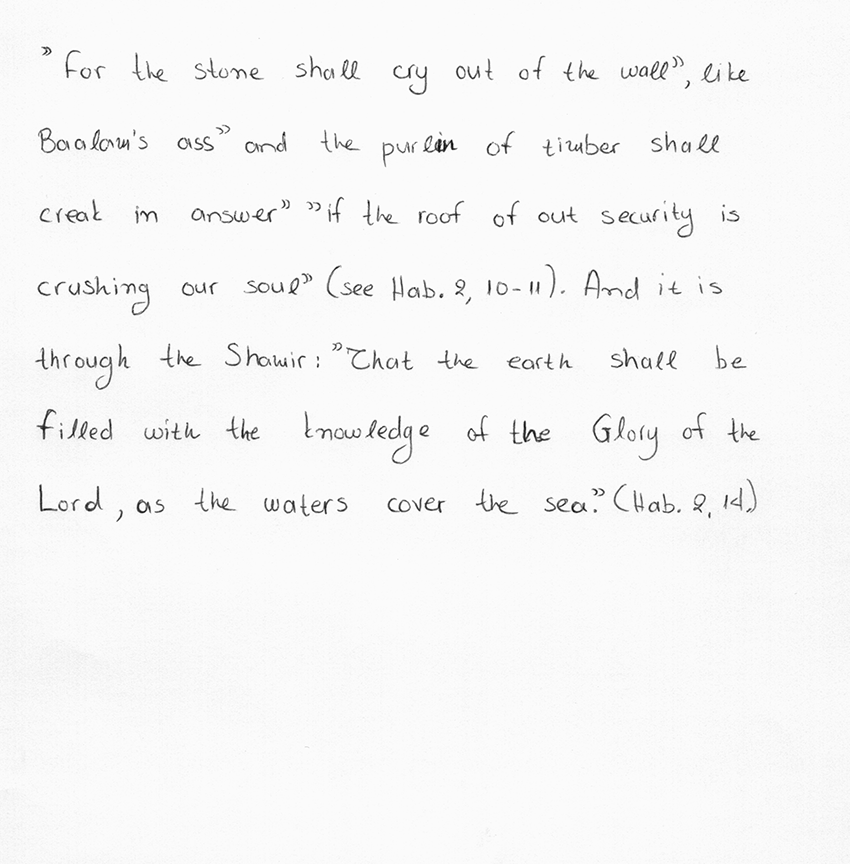 "For the stone shall cry out of the wall", like
Baalam's ass" and the purlin of timber shall
creak in answer" "if the roof of out security is
crushing our soul" (see Hab. 2, 10-11). And it is
through the Shamir: "That the earth shall be
filled with the knowledge of the Glory of the
Lord, as the waters cover the sea." (Hab. 2, 14.)